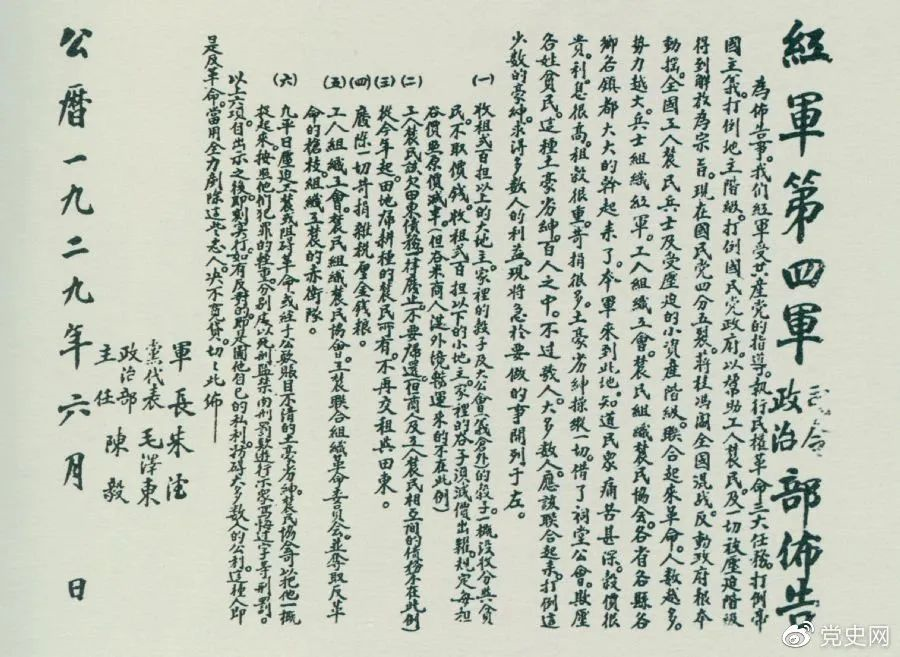 紅軍第四軍司令政治部佈告
為佈告事。我們紅軍受共產党的指導。執行民權革命三大任務。打倒帝
國主義。打倒地主階級。打倒國民党政府。以幫助工人農民及一切被壓迫階級
得到解放為宗旨。現在國民黨四分五裂。蔣桂馮閻全國混战。反動政府根本
動搖。全國工人農民兵士及受壓迫的小資產階級。聯合起來革命。人数越多。
勢力越大。兵士組織紅軍。工人組織工會。農民組織農民協會。各省各縣各
鄉各鎮都大大的幹起来了。本軍来到此地。知道民衆痛苦甚深。穀價很
貴。利息很高。租穀很重。苛捐很多。土豪劣紳操縱一切。借了祠堂公會。欺壓
各姓貧民。這種土豪劣紳。百人之中。不过数人。大多数人應該聯合起来。打倒這
少数的豪紳。求得多数人的利益。現將急於要做的事開列于左。
(一) 收租弍百担以上的大地主。家裡的穀子及大公會(義倉外)的穀子。一概沒收分與貧
民。不取價钱。收租弍百担以下的小地主。家裡的谷子須減價出糶。規定每担
谷價照原價減半。(但谷米商人從外境販運来的不在此例)
(二) 工人農民該欠田東債務一律廢止。不要歸還。(但商人及工人農民相互間的債務不在此例)
(三) 從今年起。田地歸耕種的農民所有。不再交租與田東。
(四) 廢除一切苛捐雜稅厘金錢粮。
(五) 工人組織工會。農民組織農民協會。工農聯合組織革命委員会。並奪取反革
命的槍枝。組織工農的赤衛隊。
(六) 凡平日壓迫工農或阻碍革命。或經手公款賬目不清的土豪劣紳。農民協會可以把他一概
捉起来。按照他们犯罪的輕重。分别處以死刑監禁肉刑罰款遊行示衆写悔过字等刑罰。
以上六項自出示之後。即刻实行。如有反對的。即是圖他自己的私利。妨碍大多数人的公利。這種人即
是反革命。當用全力剷除這些恶人。决不寬貸。切切此佈
軍長 朱德
黨代表 毛澤東
政治部主任 陳毅
公曆一九二九年六月 日
党史网